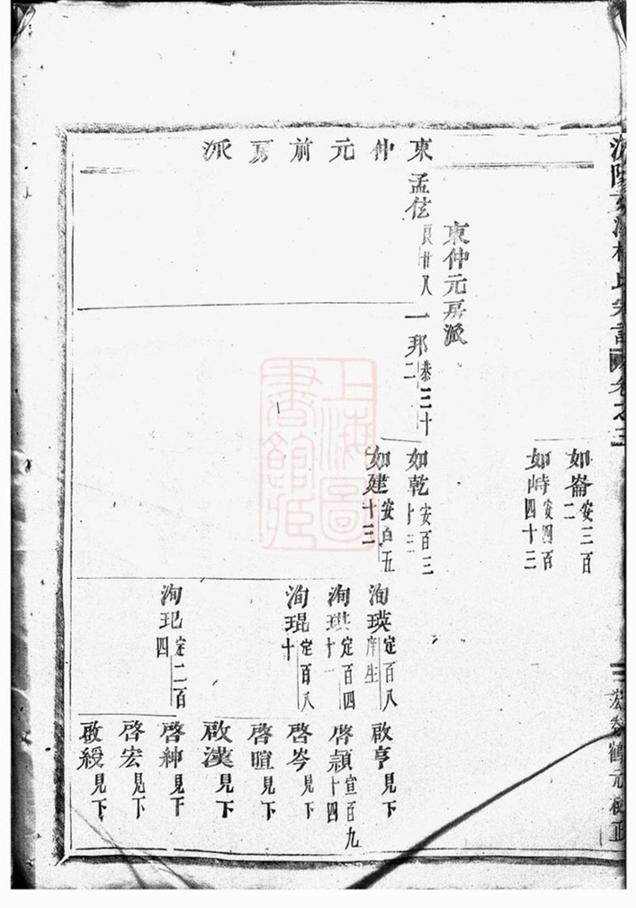 如崙安三百二
如峙安四百四十三
東仲元房派
東仲元前房派
孟伭
一邦恭三十二
如乾安百三十三
如建安百五十三
洵瑛定百八庠生
洵琪定百四十一
洵琨定百八十
洵玘定二百四
啟亨見下
啓頴宣百九十四
啓岑見下
啓暄見下
啟漢見下
啓紳見下
啓宏見下
啟綬見下
上海圖書館藏